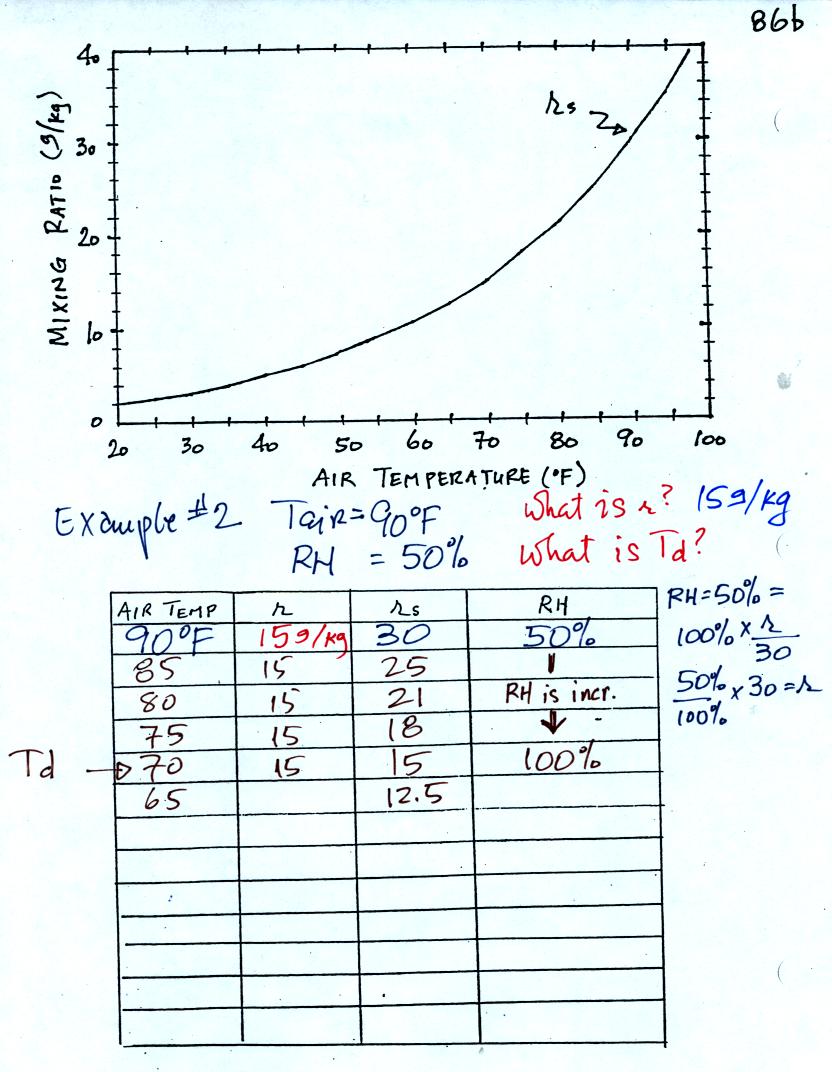 86b
40
30
20
10
0
MIXING RATIO (g/kg)
rs
20 30 40 50 60 70 80 90 100
AIR TEMPERATURE (°F)
Example #2 Tair=90°F What is r? 15g/kg
RH = 50% What is Td?
AIR TEMP r rs RH
90°F 15g/kg 30 50%
85 15 25
80 15 21 RH is incr.
75 15 18
Td 70 15 15 100%
65 12.5
RH=50%=
100% × r
30
50% × 30 = r
100%